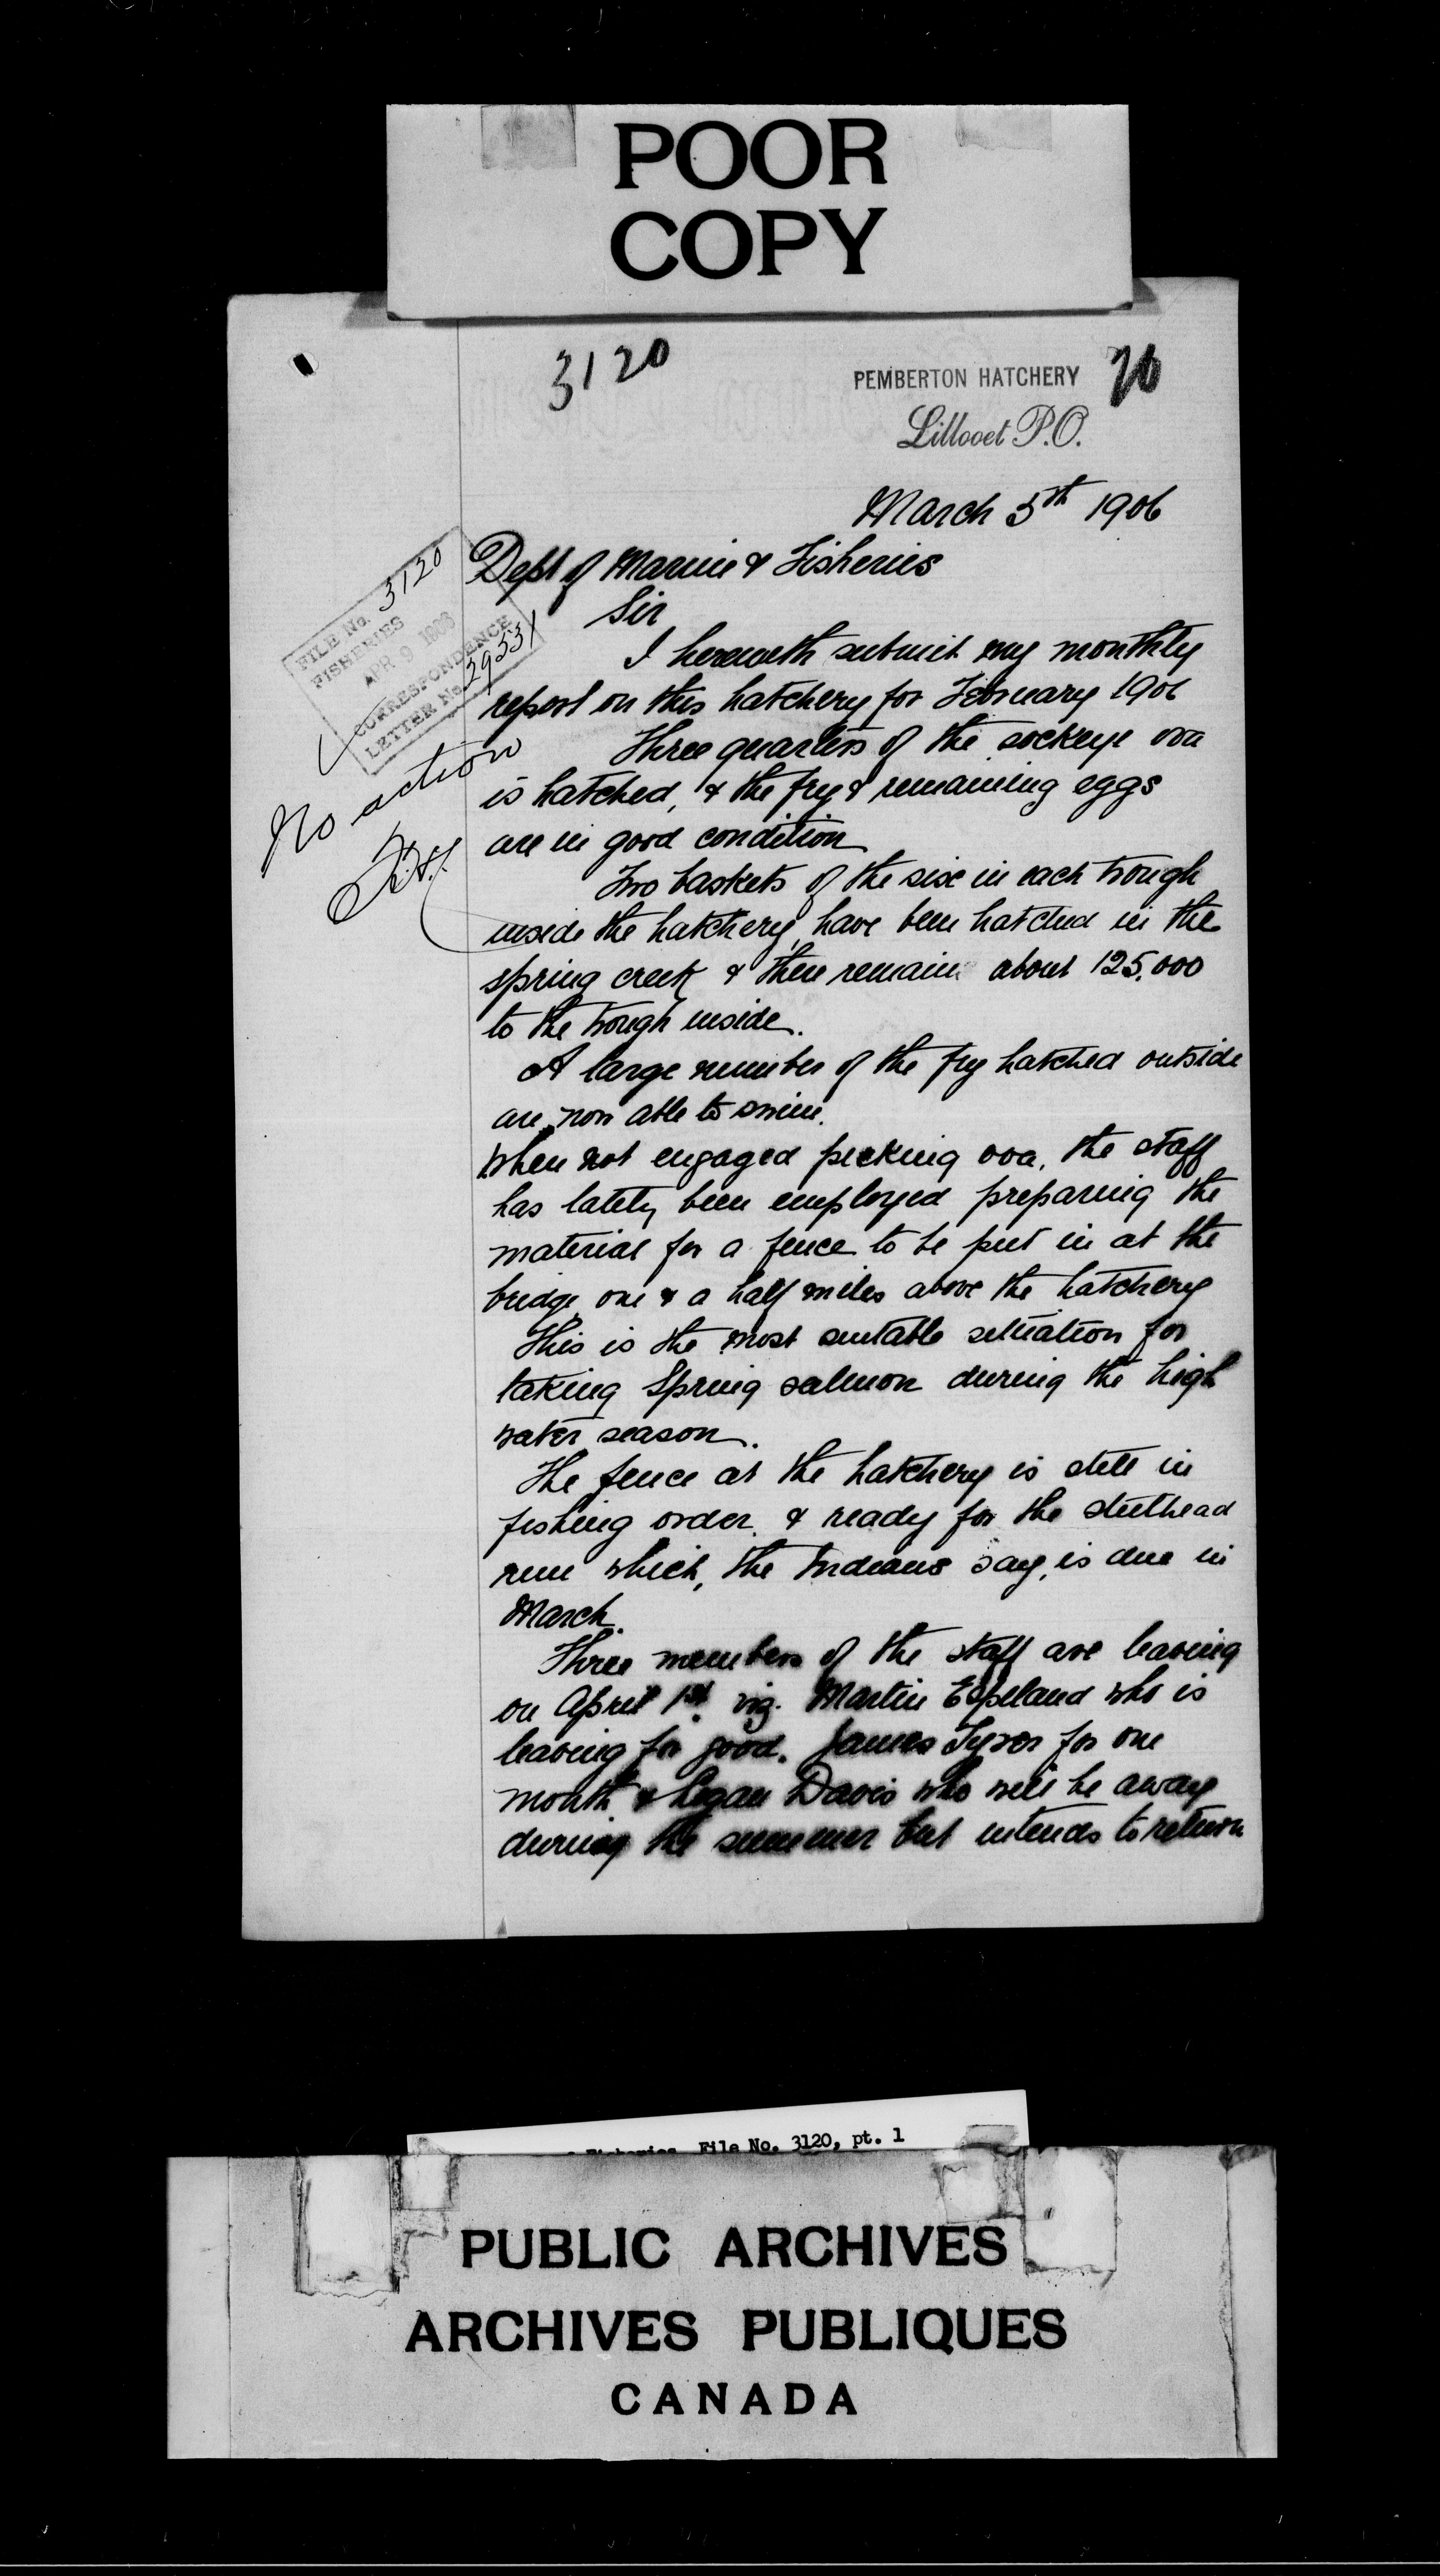 POOR
COPY
3120
PEMBERTON HATCHERY
Lillooet P.O.
March 5th 1906
Dept of Marine & Fisheries
Sir
I herewith submit my monthly
report on this hatchery for February 1906
Three quarters of the sockeye ova
is hatched, & the fry & remaining eggs
are in good condition
Two baskets of the six in each trough
inside the hatchery, have been hatched in the
spring creek & there remain about 125,000
to the trough inside.
A large number of the fry hatched outside
are now able to swim.
When not engaged picking ova, the staff
has lately been employed preparing the
material for a fence to be put in at the
bridge one & a half miles above the hatchery
This is the most suitable situation for
taking Spring salmon during the high
water season.
The fence at the hatchery is still in
fishing order, & ready for the steelhead
run which, the Indians say, is due in
March.
Three members of the staff are leaving
on April 1st. viz. Martin Espeland who is
leaving for good. James Tyson for one
month & Logan Davis who will be away
during the summer but intends to return
FILE No. 3120
FISHERIES
APR 9 1906
CORRESPONDENCE
LETTER No. 29551
No action
File No. 3120, pt. 1
PUBLIC ARCHIVES
ARCHIVES PUBLIQUES
CANADA